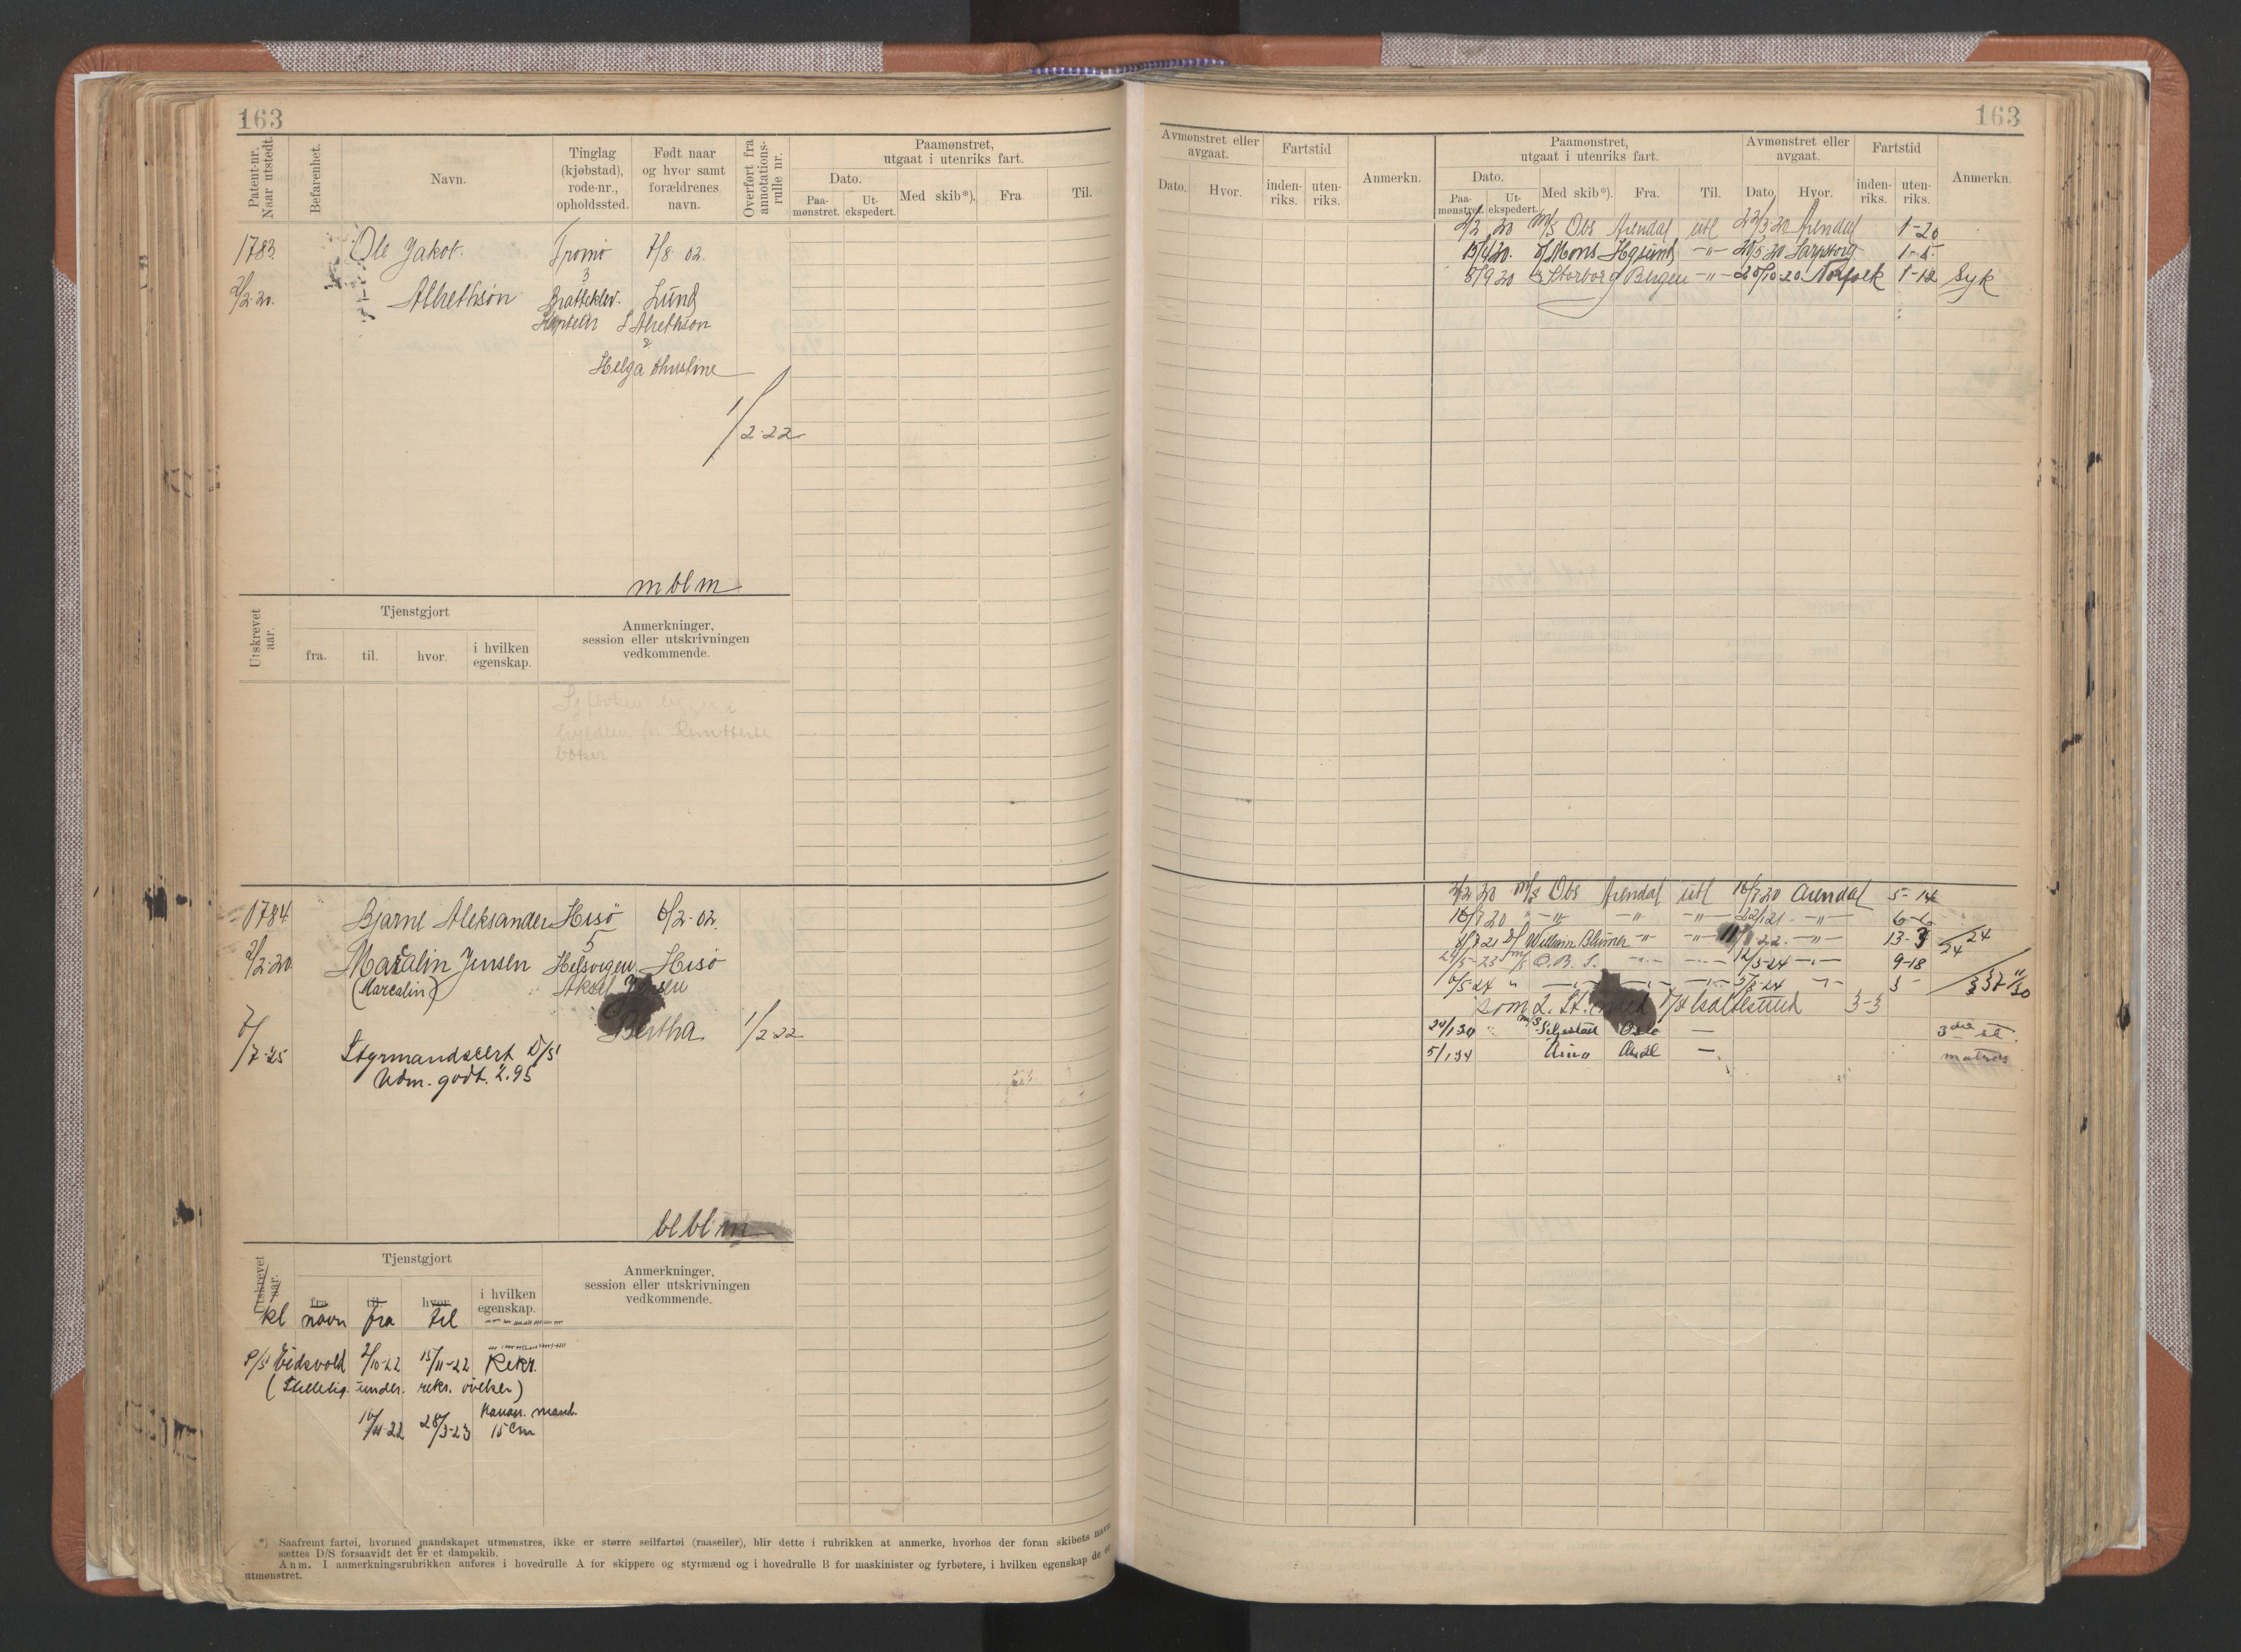 163
Patent-nr.
Naar utstedt.
Befarenhet.
Navn.
Tinglag
(kjøbstad),
rode-nr.,
opholdssted.
Født naar
og hvor samt
forældrenes
navn.
Overført fra
annotations-
rulle nr.
Paamønstret,
utgaat i utenriks fart.
Dato.
Paa-
mønstret.
Ut-
ekspedert.
Med skib*).
Fra
Til.
1783
Ole Jakob
Tromö
7/8 02.
3
2/2-20.
Albrethsön
Bratteklev.
Lund
Albrethson
&
Helga
1/2-22
m bl m
Utskrevet
aar.
Tjenstgjort
fra.
til.
hvor.
i hvilken
egenskap.
Anmerkninger,
session eller utskrivningen
vedkommende.
1784
Bjarne Aleksander
Hisö
6/2-02.
5
2/2-20
Marcalin Jensen
Hisö
(Marcalin)
Aksel Jensen
Bertha
1/2-22
7/7-25
Styrmandscert D/S
Udm. godt. 2.95
bl bl m
Utskrevet
aar.
Tjenstgjort
fra
til.
hvor
i hvilken
egenskap.
Anmerkninger,
session eller utskrivningen
vedkommende.
kl navn fra til
P/S Eidsvold 2/10-22 15/11-22 Rekr.
under rekr. övelser)
16/11-22 28/3-23 Kanon. mand.
15 cm
*) Saafremt fartøi, hvormed mandskapet utmønstres, ikke er større seilfartøi (raaseiler), blir dette i rubrikken at anmerke, hvorhos der foran skibets navn
sættes D/S forsaavidt det er et dampskib.
Anm. I anmerkningsrubrikken anføres i hovedrulle A for skippere og styrmænd og i hovedrulle B for maskinister og fyrbøtere, i hvilken egenskap de er
utmønstret.
163
Avmønstret eller
avgaat.
Dato.
Hvor.
Fartstid
inden-
riks.
uten-
riks.
Anmerkn.
Paamønstret,
utgaat i utenriks fart.
Dato.
Paa-
mønstret.
Ut-
ekspedert.
Med skib*).
Fra.
Til.
Avmønstret eller
avgaat.
Dato
Hvor.
Fartstid
inden-
riks.
uten-
riks.
Anmerkn.
2/2 20 M/S Obs Arendal utl 22/3 20 Arendal 1-20
15/4 20. Mons -"- 20/5-20 Sarpsborg 1-5.
8/9 20 Storborg Bergen -"- 20/10-20 Norfolk 1-12 Syk
2/2 20 M/S Obs Arendal utl 16/7 20 Arendal 5-14
16/7 20 " -"- -"- -"- 22/1 21 -"-
D/S William Blumer -"- -"- 22. -"-
24/5-23 M/S O.B.S. -"- -"- 12/5-24 -"- 9-18
16/5-24 " -"- -"- 3 -
som 2. St. med 3-3
20/1 30 M/S Siljestad Oslo — 3die st.
5/1 34 Aina — matros